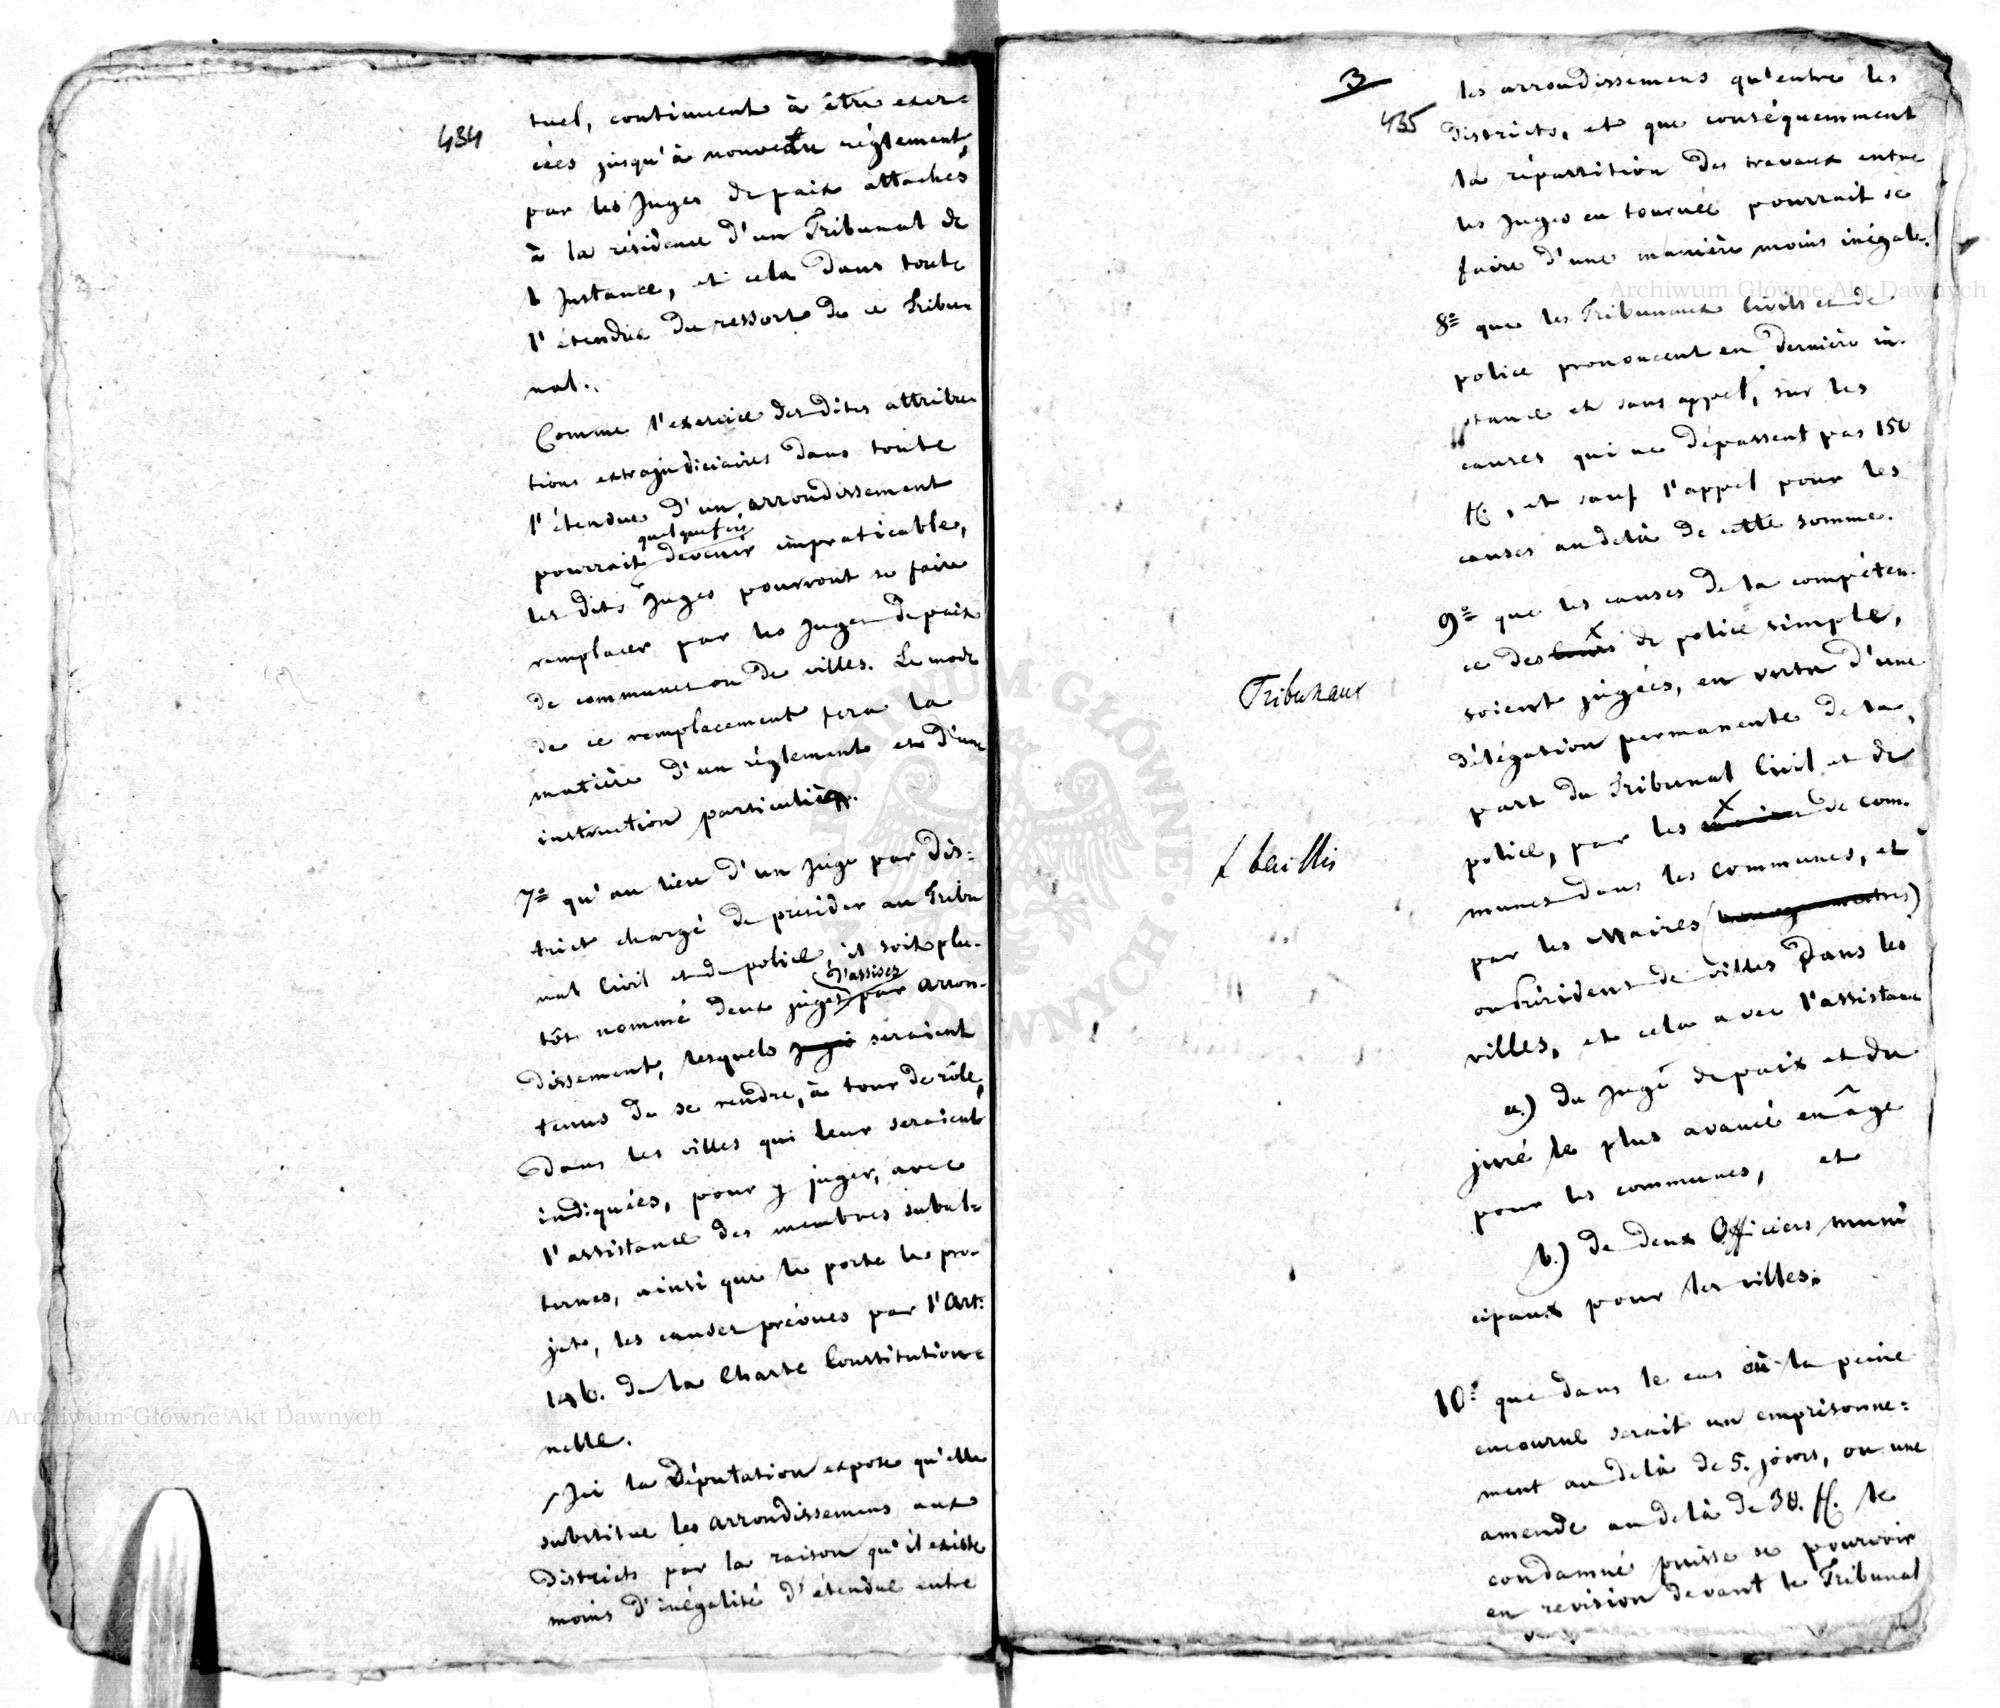 434
tuel, continuent à être exer=
cées jusqu'à nouveau réglement,
par les Juges de paix attachés
à la résidence d'un Tribunal de
1 Instance, et cela dans toute
l'étendue du ressort de ce Tribu-
nal.
Comme l'exercice des dites attribu-
tions extrajudiciaires dans toute
l'étendue d'un arrondissement
quelquefois
pourrait devenir impraticable,
les dits Juges pourront se faire
remplacer par les Juges de paix
de communes ou de villes. Le mode
de ce remplacement fera la
matière d'un réglement et d'une
instruction particulière.
7º qu'au lieu d'un Juge par dis=
trict chargé de présider au Tribu
nal Civil et de police, il soit plu-
d'assises
tôt nommé deux juges par arron-
dissement, lesquels juges seraient
tenus de se rendre, à tour de rôle,
dans les villes qui leur seraient
indiquées, pour y juger, avec
l'assistance des membres subal=
ternes, ainsi que le porte le pro-
jet, les causes prévues par l'Art:
146. de la Charte Constitution=
nelle.
Ici la Députation expose qu'elle
substitue les arrondissemens aux
Districts par la raison qu'il existe
moins d'inégalité d'étendue entre
3
435
les arrondissemens qu'entre les
Districts, et que conséquemment
la répartition des travaux entre
les Juges en tournée pourrait se
faire d'une manière moins inégale.
8º que les Tribunaux Civils et de
police prononcent en dernière in-
stance et sans appel, sur les
causes qui ne dépassent pas 150
fl., et sauf l'appel pour les
causes au delà de cette somme.
9º que les causes de la compéten-
ce des de police simple,
Tribunaux
soient jugées, en vertu d'une
délégation permanente de la
part du Tribunal Civil et de
police, par les de com-
baillis
munes dans les communes, et
par les Maires
ou Présidens de villes dans les
villes, et cela avec l'assistance
a.) du Juge de paix et du
juré le plus avancé en âge
pour les communes, et
b.) de deux Officiers muni
cipaux pour les villes.
10º que dans le cas où la peine
encourue serait un emprisonne=
ment au delà de 5. jours, ou une
amende au delà de 30. fl. le
condamné puisse se pourvoir
en revision devant le Tribunal
Archiwum Główne Akt Dawnych
Archiwum Główne Akt Dawnych
ARCHIWUM GŁÓWNE AKT DAWNYCH